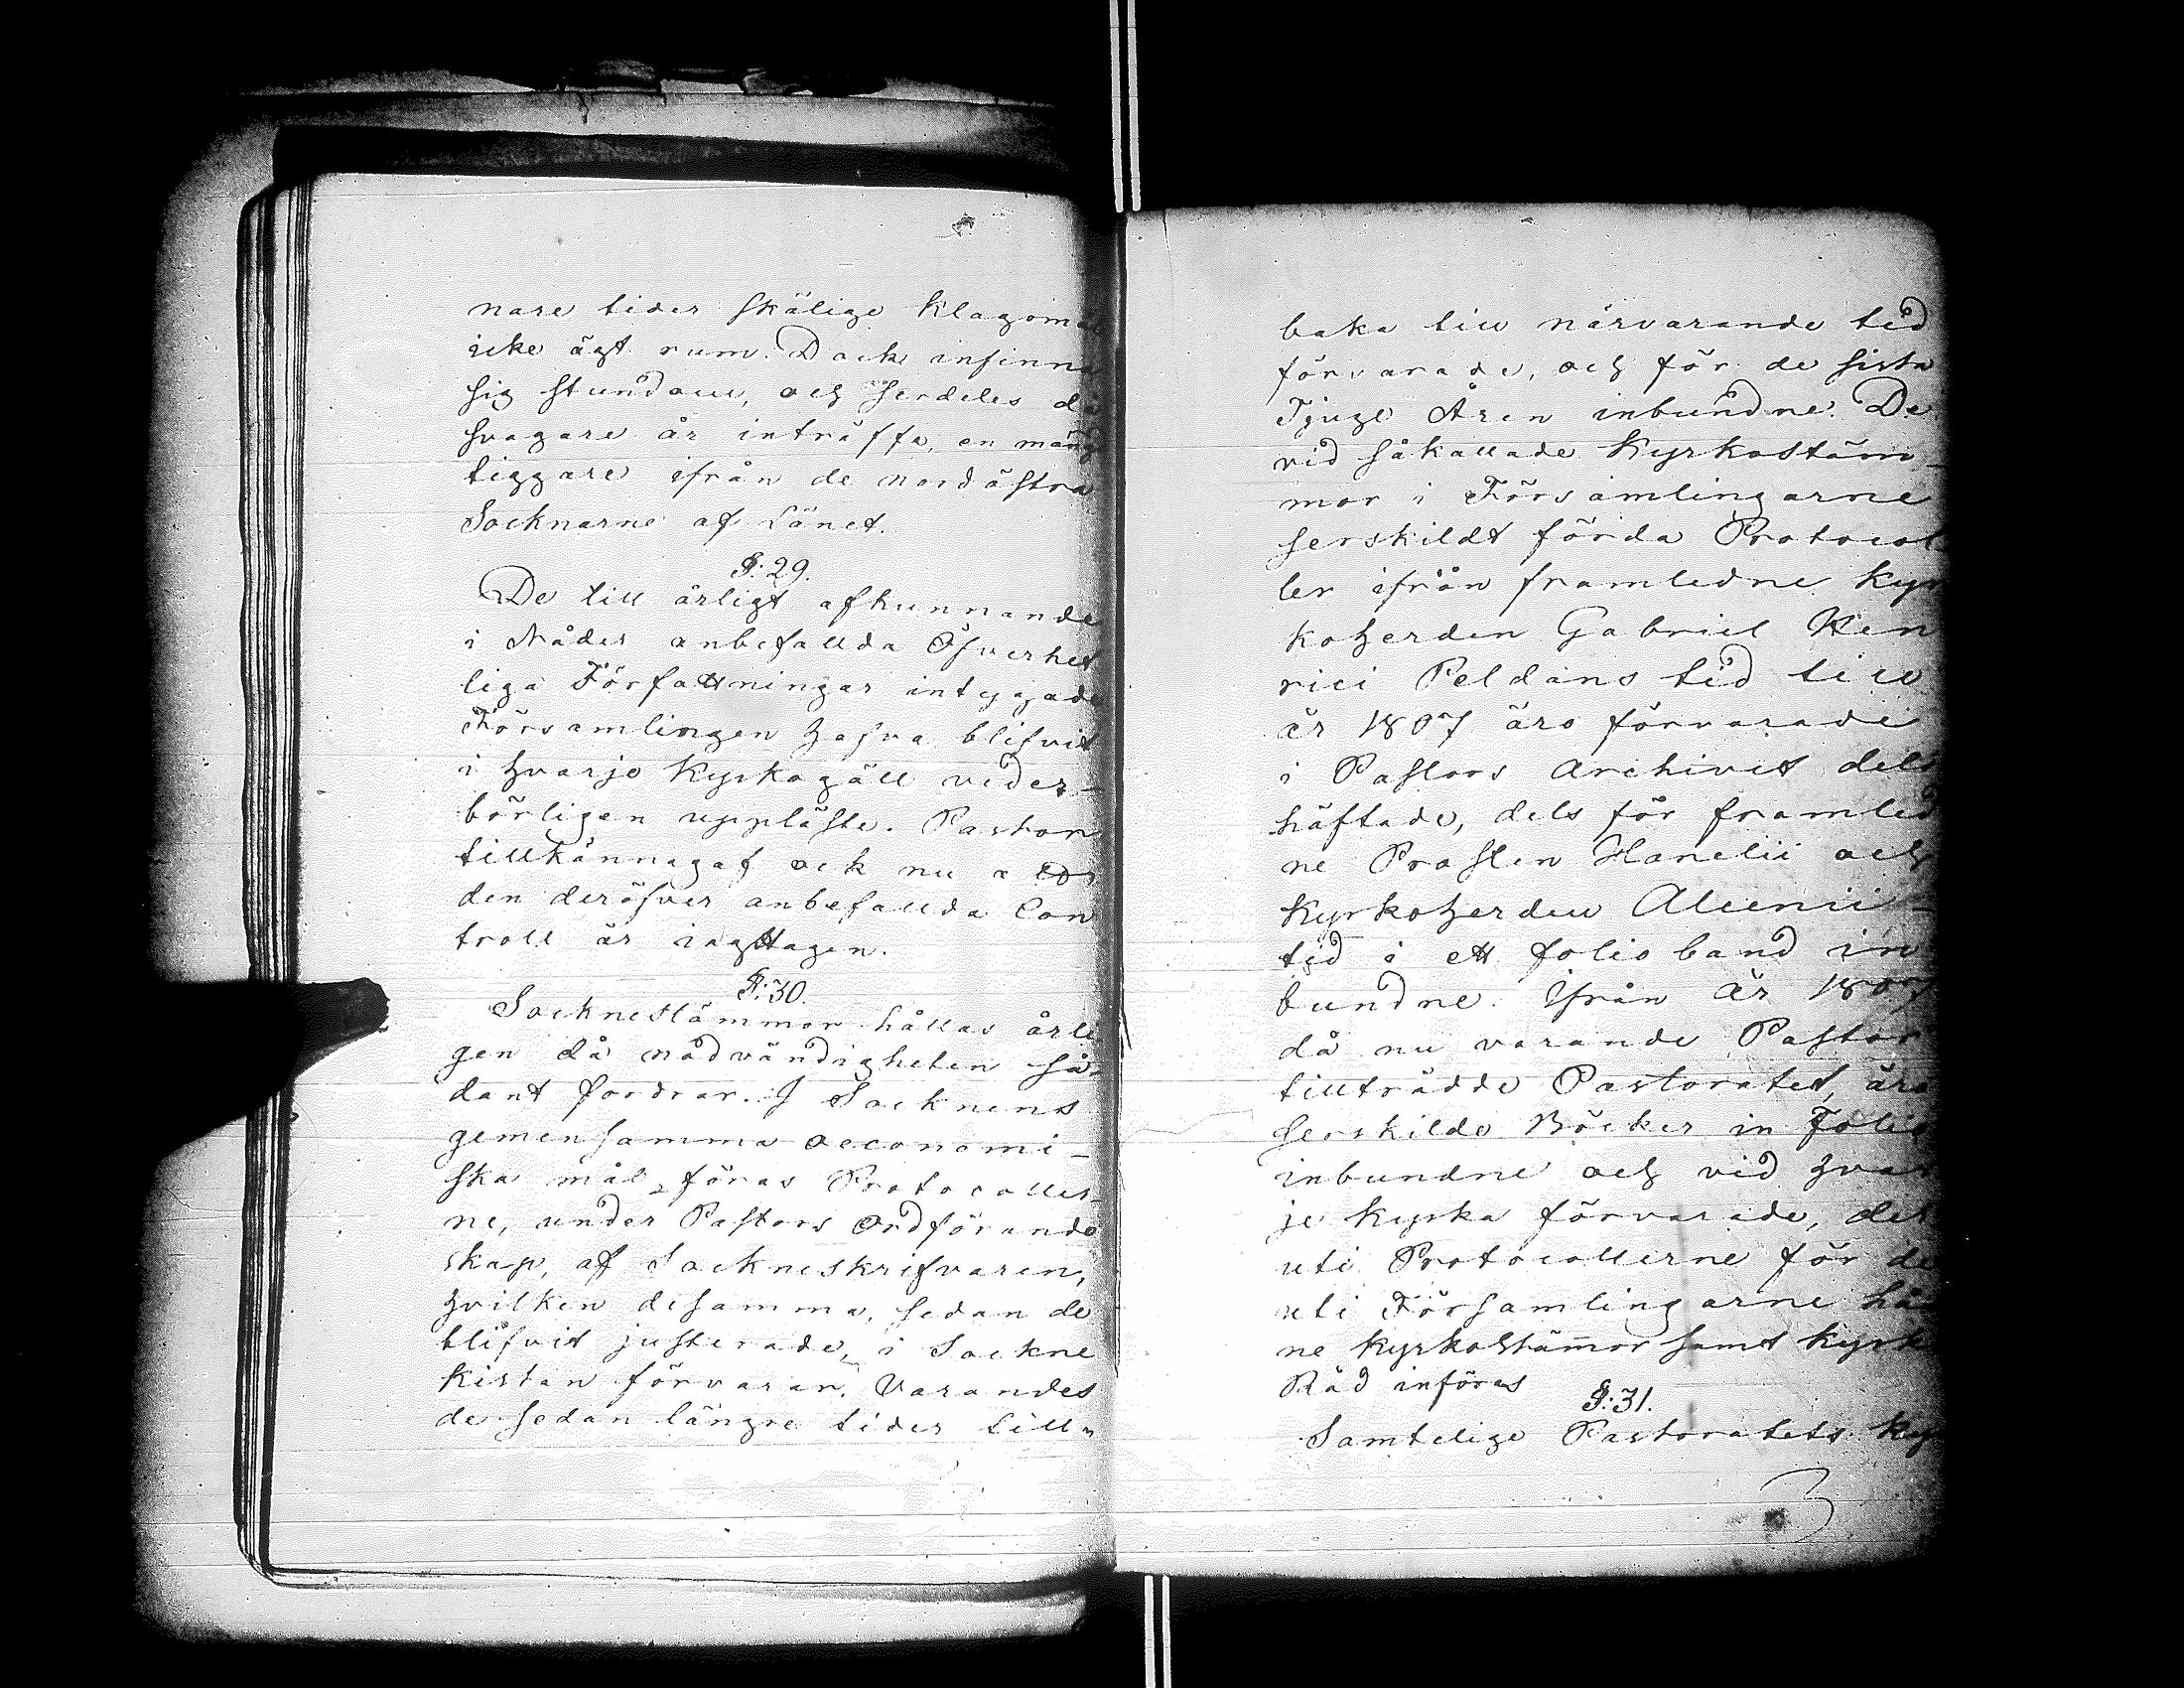 nare tider skälige Klagomål
icke ägt rum. Dock infinna
sig stundom, och serdeles då
svagare år inträffa, en mängd
tiggare ifrån de nordästra
Socknarne af Länet.
§: 29.
De till årligt afkunnande
i Nåder anbefallda Öfverhet
liga Författningar intygade
Församlingen hafva blifvit
i hvarje Kyrkogäll veder-
börligen uppläste. Pastor
tillkännagaf ock nu
den deröfver anbefallda Con
troll är iagttagen.
§: 30.
Socknestämmor hållas årli
gen då nådvändigheten så-
dant fordrar. I Socknens
gemensamma oeconomi-
ska mål föras Protocoller-
ne, under Pastors Ordförande
skap, af Sockneskrifvaren,
hvilken desamma, sedan de
blifvit justerade, i Sockne
kistan förvarar. Varandes
de sedan längre tider till-
baka till närvarande tid
förvarade, och för de sista
Tjuge Åren inbundne. De
vid såkallade Kyrkostäm-
mor i Församlingarne
serskildt förda Protocol
ler ifrån framledne Kyr
koherden Gabriel Hen
rici Peldans tid till
år 1807 äro förvarade
i Pastors Archivet dels
häftade, dels för framled
ne Prosten Hanelii och
Kyrkoherden Alcenii
tid i ett folio band in
bundne. Ifrån År 1807
då nu varande Pastor
tillträdde Pastoratet, äro
serskilde Böcker in Folio
inbundne och vid hvar
je kyrka förvarade, der
uti Protocollerne för de
uti Församlingarne håll
ne kyrkostämmor samt kyrko
Råd införas
§: 31.
Samtelige Pastoratets Ky